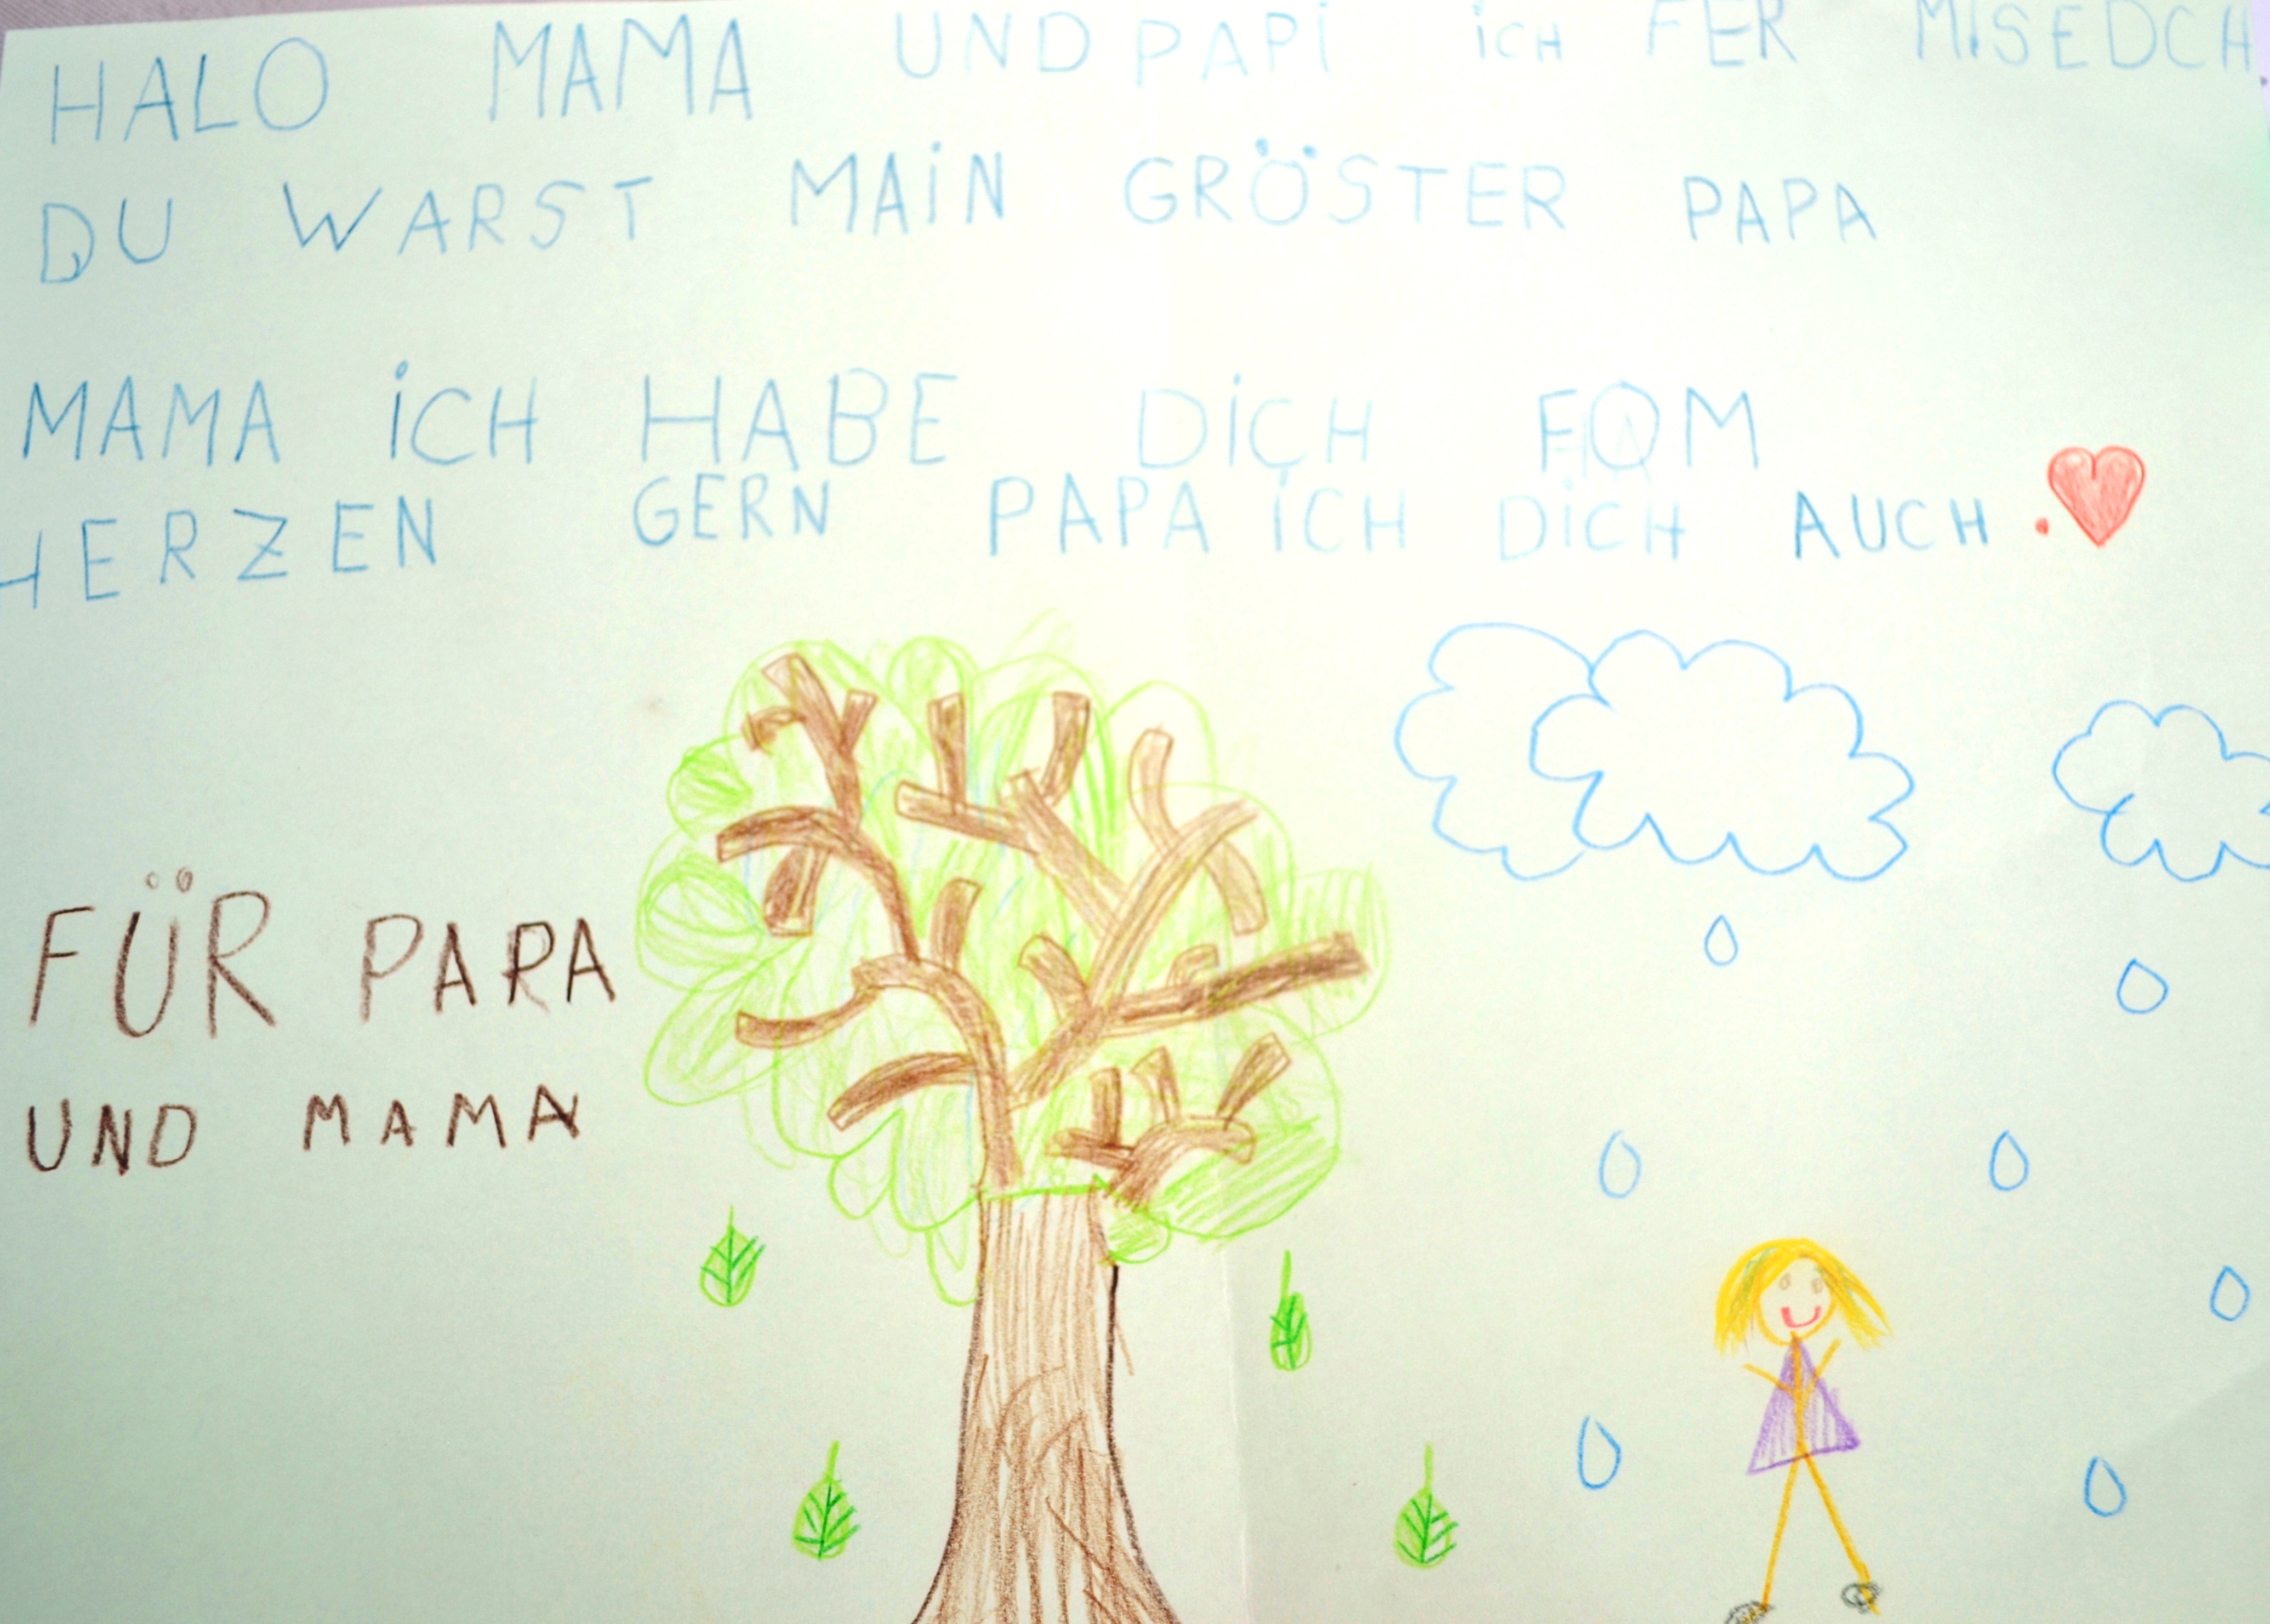 HALO MAMA UND PAPi iCH FER MiSEDCH
DU WARST MAiN GRÖSTER PAPA
MAMA iCH HABE DiCH FOM
HERZEN GERN PAPA iCH DiCH AUCH.
FÜR PAPA
UND MAMA